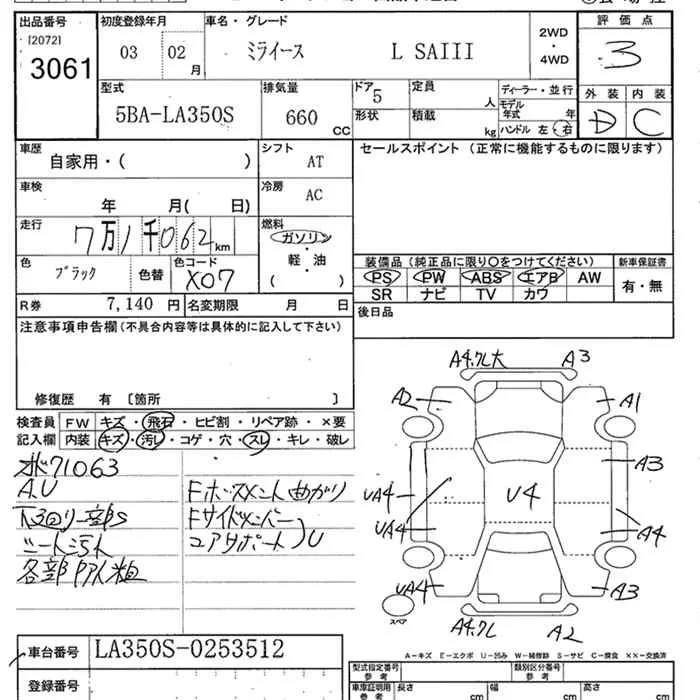 出品番号 初度登録年月 車名・グレード 2WD・4WD 評価点
[2072]
3061 03 02月 ミライース L SAIII 3
型式 排気量 ドア 定員 ディーラー・並行 外装 内装
5BA-LA350S 660CC 5 人 モデル年式 年 D C
形状 積載 kg ハンドル 左・右
車歴 自家用・( ) シフト AT セールスポイント(正常に機能するものに限ります)
車検 年 月( 日) 冷房 AC
走行 7万1千062km 燃料 ガソリン・軽・油 ( )
色 ブラック 色替 色コード X07
装備品(純正品に限り○をつけてください) 新車保証書
PS PW ABS エアB AW 有・無
SR ナビ TV カワ
R券 7,140円 名変期限 月 日 後日品
注意事項申告欄(不具合内容等は具体的に記入して下さい)
修復歴 有 〔箇所 〕
検査員 FW キズ・飛石・ヒビ割・リペア跡・×要
記入欄 内装 キズ・汚レ・コゲ・穴・スレ・キレ・破レ
71063
A.U
下回り一部S
シート汚れ
各部
Fホースメント曲がり
Fサイドメンバー
コアサポート)U
A4.凹大 A3
A2 A1
UA4 U4 A3
UA4 A4
UA4 A3
スペア A4.凹 A2
A-キズ E-エクボ U-凹み W-補修跡 S-サビ C-腐食 XX-交換済
車台番号 LA350S-0253512
登録番号
型式指定番号 参考 類別区分番号 参考
車庫証明用 参考 長さ cm 幅 cm 高さ cm